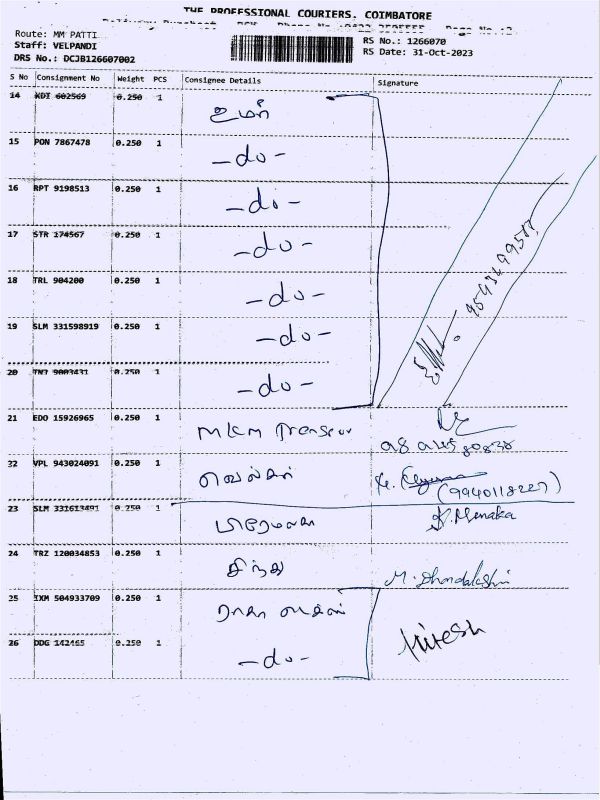 THE PROFESSIONAL COURIERS. COIMBATORE
Route: MM PATTI
Staff: VELPANDI
DRS No.: DCJB126607002
RS No.: 1266070
RS Date: 31-Oct-2023
S No Consignment No Weight PCS Consignee Details Signature
14 KDT 602569 0.250 1 உமர்
15 PON 7867478 0.250 1 -do-
16 RPT 9198513 0.250 1 -do-
17 STR 174567 0.250 1 -do-
18 TRL 904200 0.250 1 -do-
19 SLM 331598919 0.250 1 -do-
20 TNJ 9003431 0.250 1 -do-
21 EDO 15926965 0.250 1 MKM
22 VPL 943024091 0.250 1 (9940118227)
23 SLM 331613491 0.250 1 Menaka
24 TRZ 120034853 0.250 1 சிந்து M. Dhandalakshmi
25 IXM 504933709 0.250 1
26 DDG 142465 0.250 1 -do- Hitesh